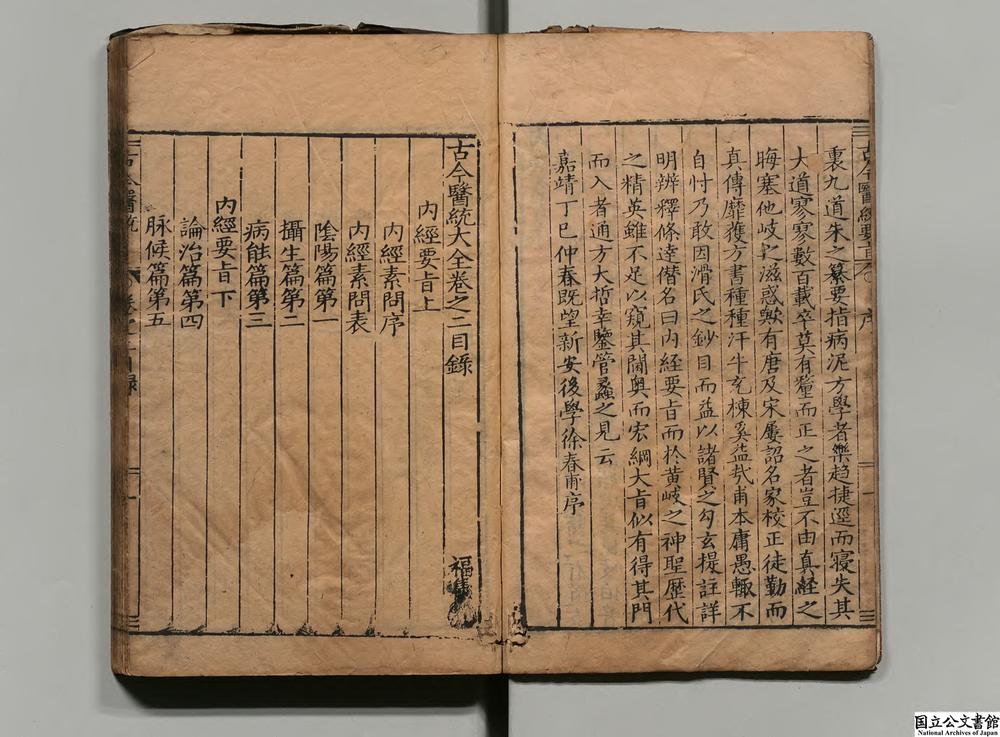 古今醫統要旨 序
裏九道朱之纂要指病泥方學者樂趋捷逕而寝失其
大道寥寥數百載卒莫有釐而正之者豈不由真経之
晦塞他岐之滋惑歟有唐及宋屢詔名家校正徒勤而
真傳靡獲方書種種汗牛充棟奚益㢤甫本庸愚輙不
自忖乃敢因滑氏之鈔目而益以諸賢之勾玄提註詳
明辨釋條達僣名曰内経要旨而於黄岐之神聖歴代
之精英雖不足以窺其閫奥而宏綱大旨似有得其門
而入者通方大哲幸鑒管蠡之見云
嘉靖丁巳仲春既望新安後學徐春甫序
古今醫統大全卷之二目錄
福
内經要旨上
内經素問序
内經素問表
陰陽篇第一
攝生篇第二
病能篇第三
内經要旨下
論治篇第四
脉候篇第五
古今醫統 卷之二目録 一
国立公文書館
National Archives of Japan